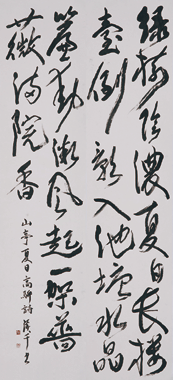 绿树阴浓夏日长楼
台倒影入池塘水晶
帘动微风起一架蔷
薇满院香
山亭夏日高骈诗